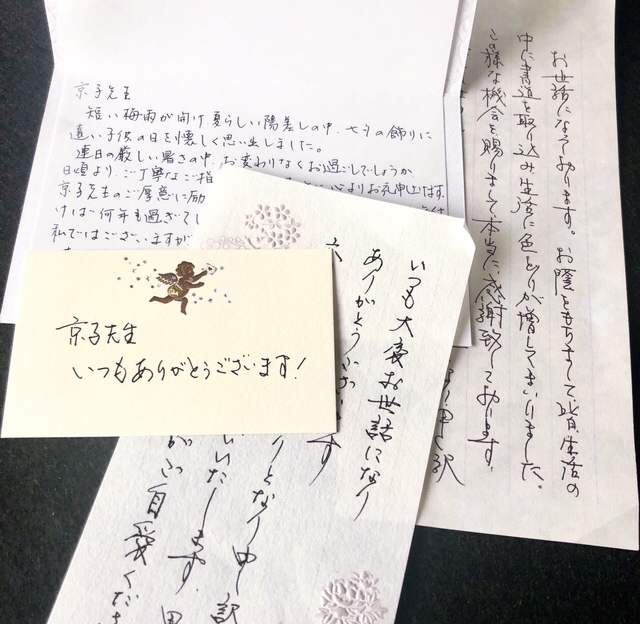 京子先生
短い梅雨が開け夏らしい陽差しの中、七夕の飾りに
遠い子供の日を懐しく思い出しました。
連日の厳しい暑さの中、お変わりなくお過ごしでしょうか
日頃より、ご丁寧なご指
心よりお礼申し上げます。
京子先生のご厚意に励
けば何年も過ぎてし
私ではございますが
京子先生
いつもありがとうございます!
いつも大変お世話になり
ありがとうございます
となり申し訳
いたします。
自愛くださ
お世話になっております。お陰をもちまして、皆、生活の
中に書道を取り込み生活に色どりが増してまいりました。
この様な機会を賜りまして、本当に、感謝致しております。
申し訳